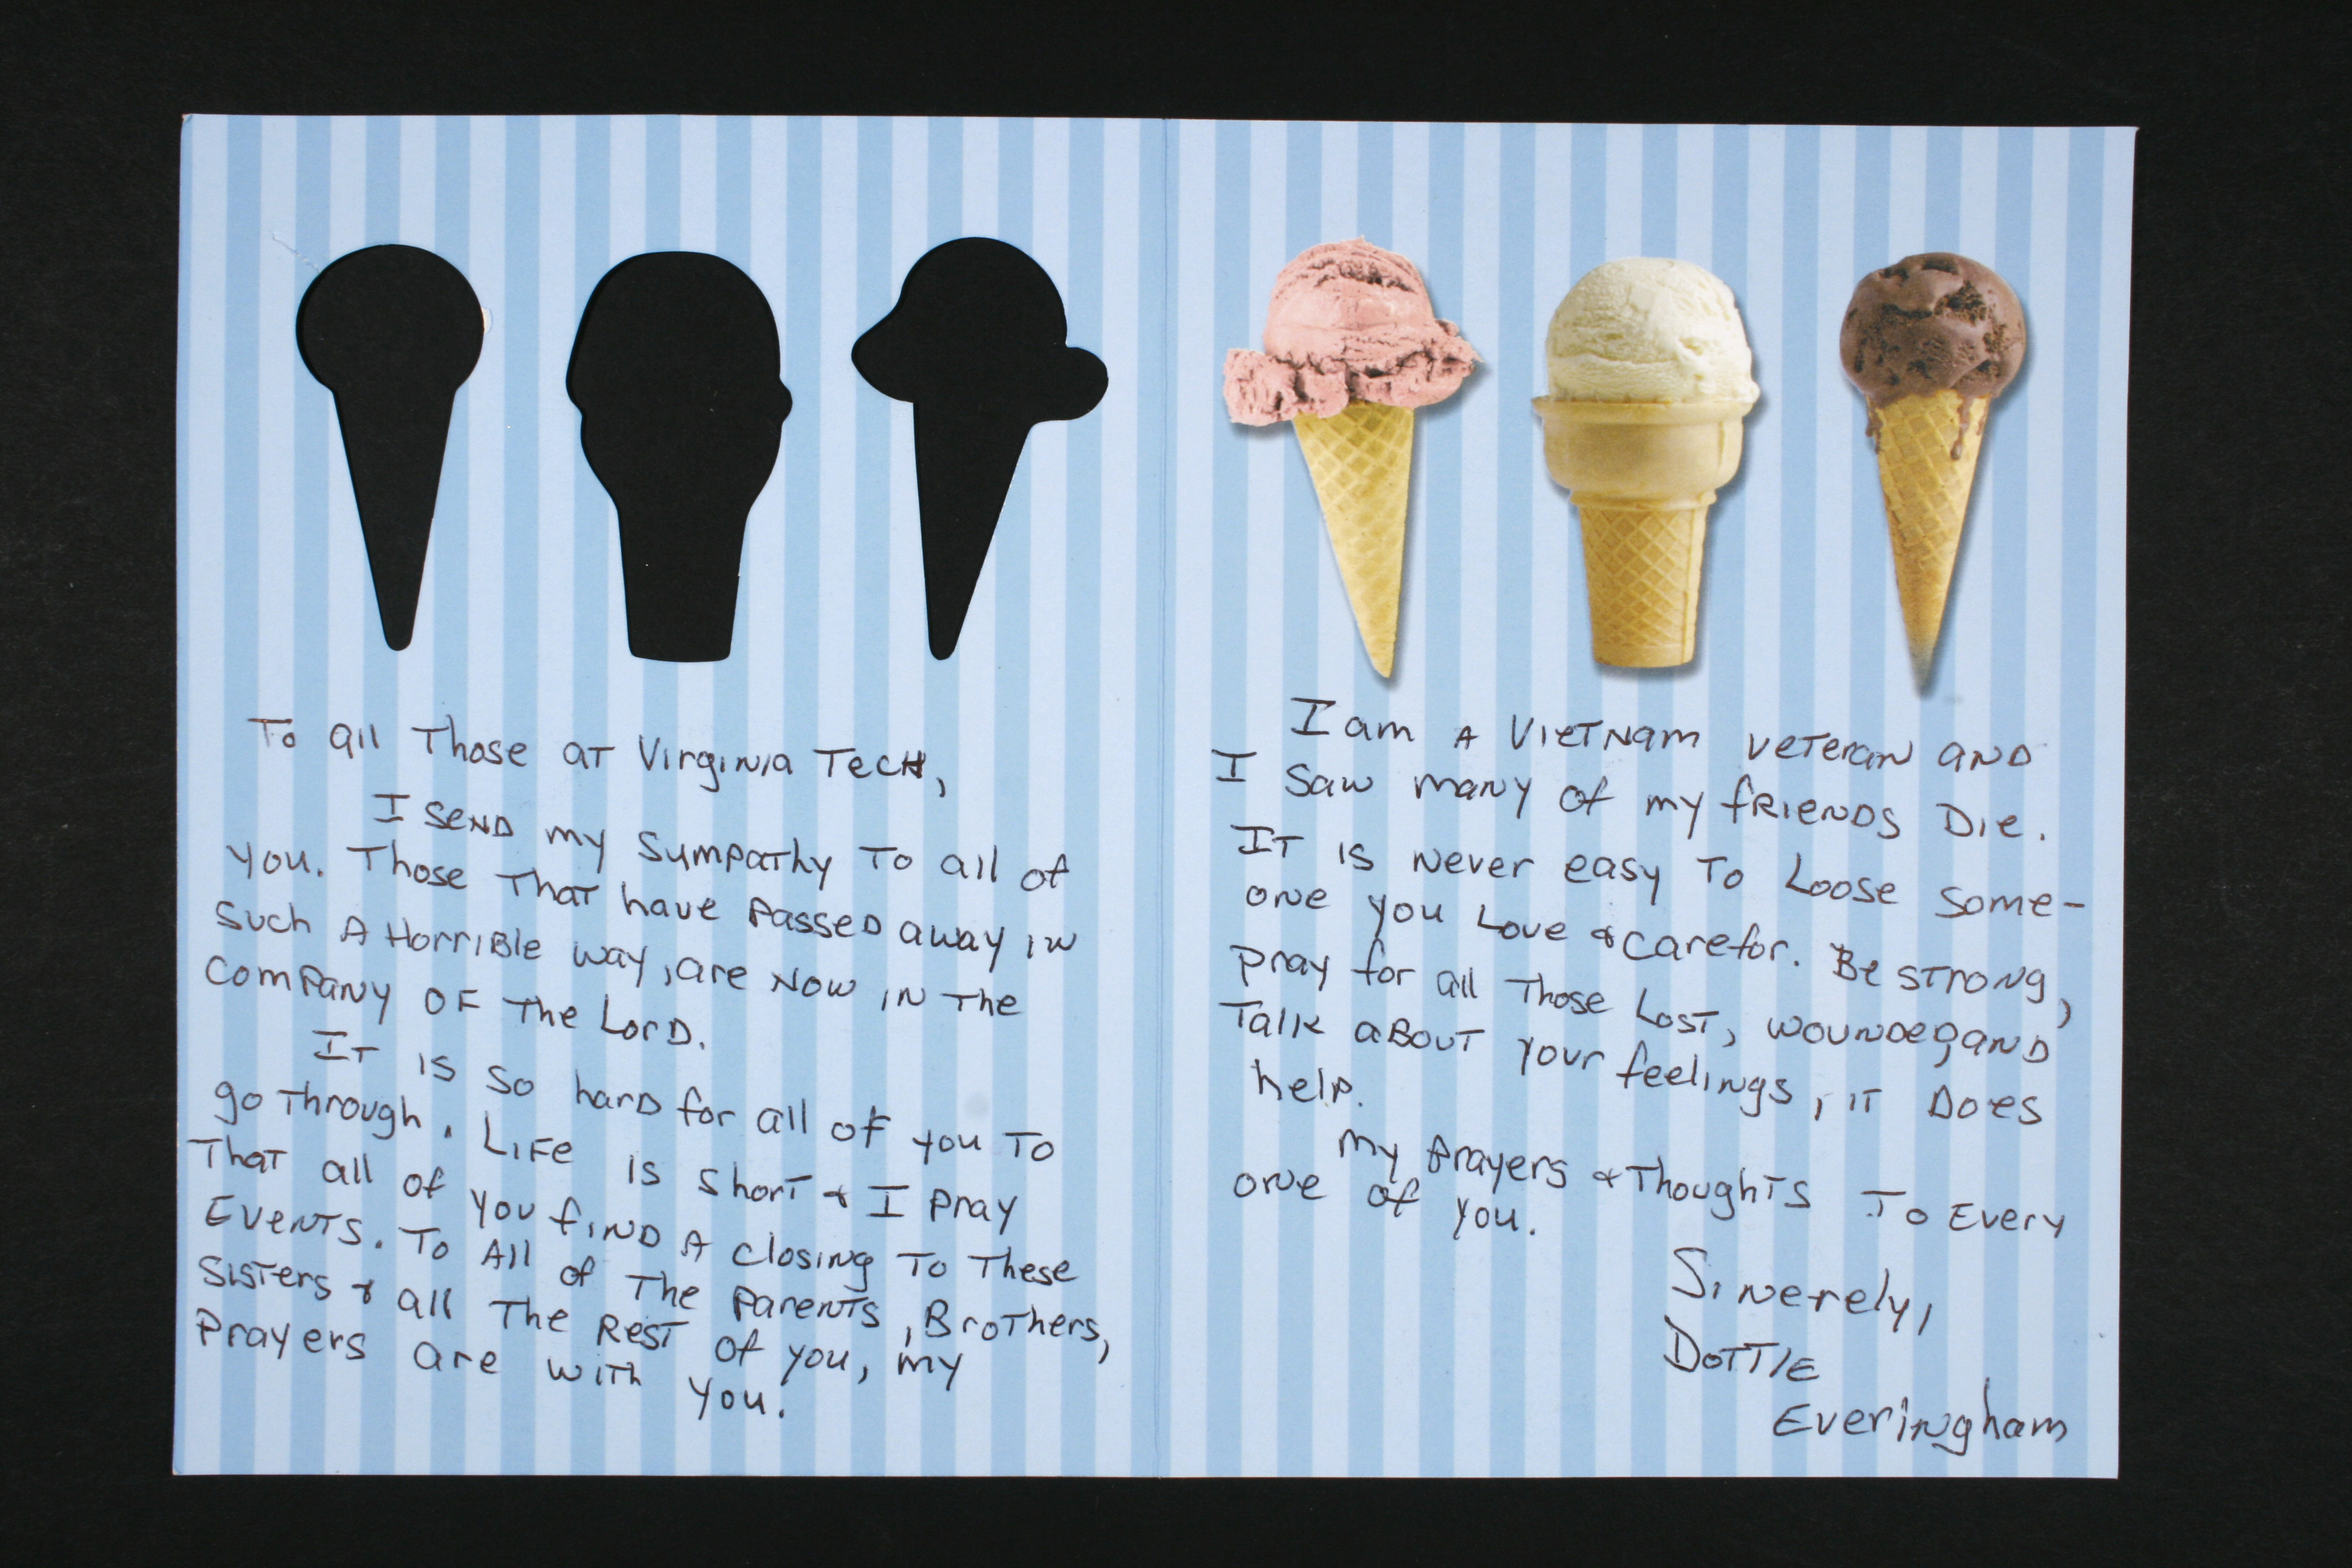 To all Those aT VirgiNia TecH,
I SeND my SumpaThy To all of
you. Those ThaT have PasseD away iN
such A HorriBle way, are Now iN The
ComPaNy OF The LorD.
IT is so harD for all of you To
go Through. LiFe is shorT & I pray
ThaT all of you fiND A closiNg To These
EveNTs. To All of The PareNTs, BroThers,
SisTers & all The ResT of you, my
Prayers are wiTh you.
I am A VieTNam veTeraN aND
I Saw maNy of my fRieNDs Die.
IT is Never easy To Loose Some-
oNe you Love & care for. Be sTroNg,
pray for all Those LosT, wouNDeD, aND
Talk aBouT your feeliNgs, iT Does
help.
My Prayers & ThoughTs To Every
oNe of you.
SiNerely,
DoTTiE
EveriNgham